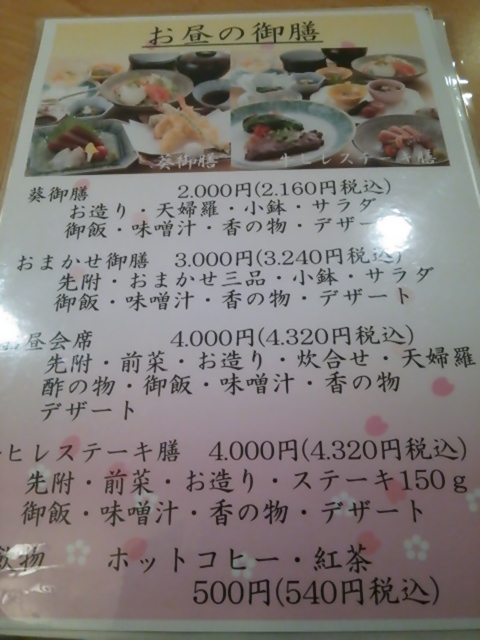 お昼の御膳
葵御膳
牛ヒレステーキ膳
葵御膳 2.000円(2.160円税込)
お造り・天婦羅・小鉢・サラダ
御飯・味噌汁・香の物・デザート
おまかせ御膳 3.000円(3.240円税込)
先附・おまかせ三品・小鉢・サラダ
御飯・味噌汁・香の物・デザート
昼会席 4.000円(4.320円税込)
先附・前菜・お造り・炊合せ・天婦羅
酢の物・御飯・味噌汁・香の物
デザート
ヒレステーキ膳 4.000円(4.320円税込)
先附・前菜・お造り・ステーキ150g
御飯・味噌汁・香の物・デザート
飲物 ホットコヒー・紅茶
500円(540円税込)